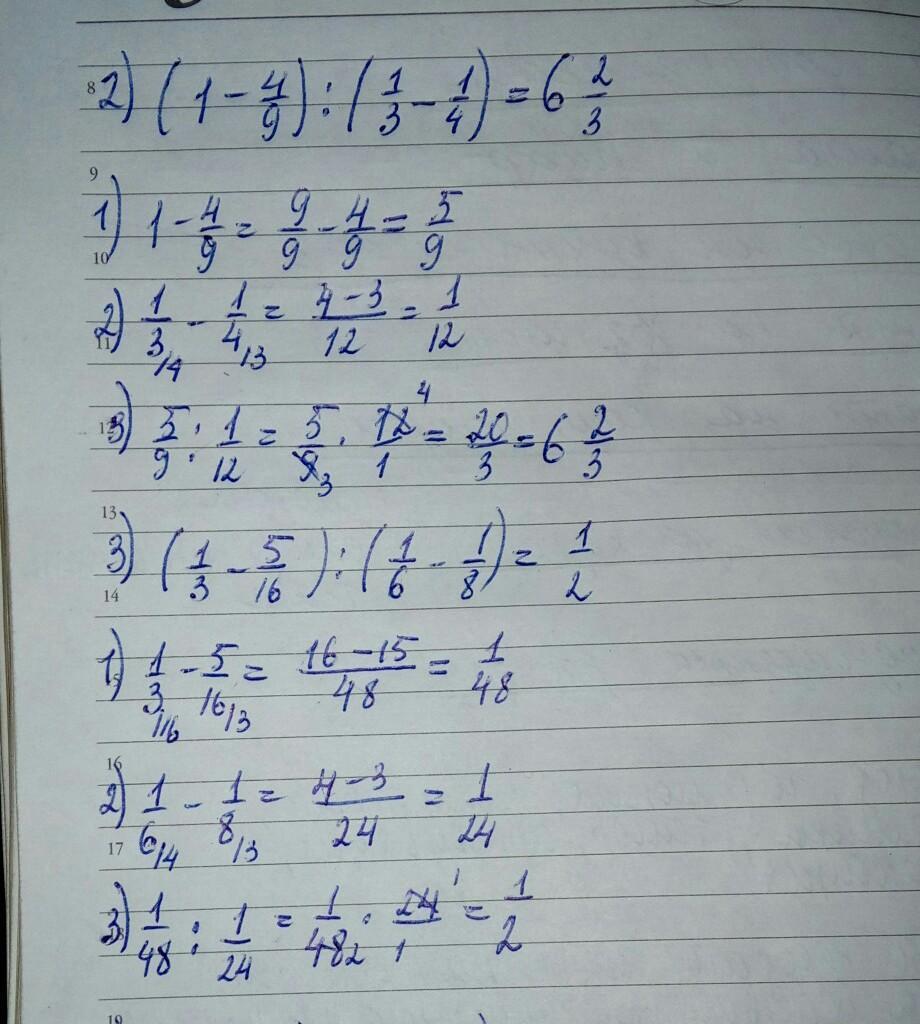 8 2) (1 - 4/9) : (1/3 - 1/4) = 6 2/3
9
1) 1 - 4/9 = 9/9 - 4/9 = 5/9
10
2) 1/3 /4 - 1/4 /3 = 4-3/12 = 1/12
11
12 3) 5/9 : 1/12 = 5/9 3 · 12 4/1 = 20/3 = 6 2/3
13
3) (1/3 - 5/16) : (1/6 - 1/8) = 1/2
14
1) 1/3 /16 - 5/16 /3 = 16-15/48 = 1/48
16
2) 1/6 /4 - 1/8 /3 = 4-3/24 = 1/24
17
3) 1/48 : 1/24 = 1/48 2 · 24 1/1 = 1/2
19